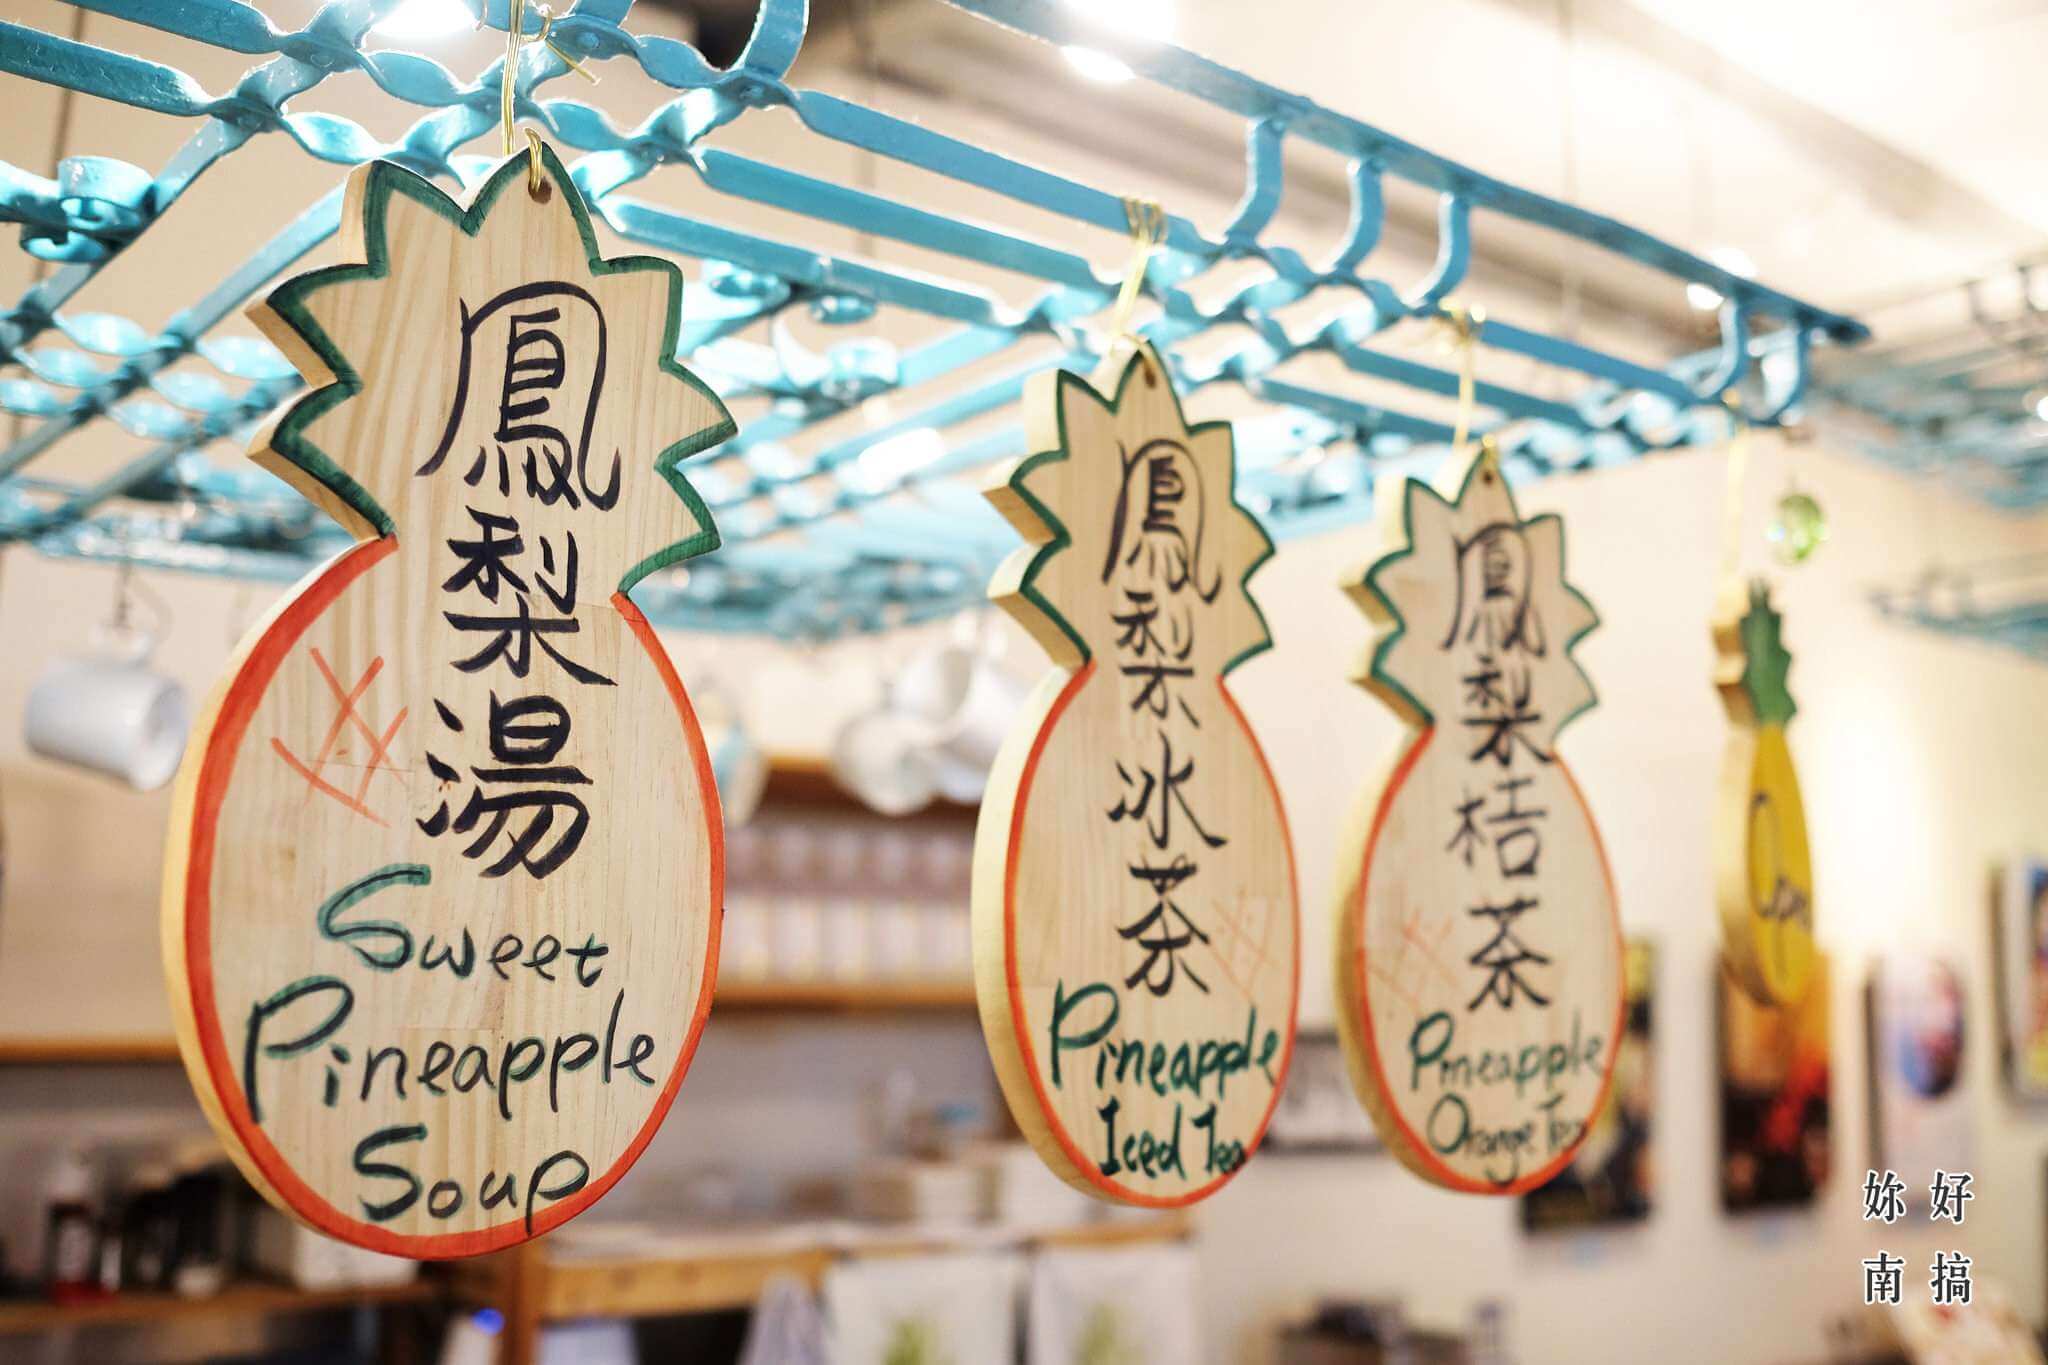 鳳梨湯
Sweet
Pineapple
Soup
鳳梨冰茶
Pineapple
Iced Tea
鳳梨桔茶
Pineapple
Orange Tea
Open
妳好
南搞